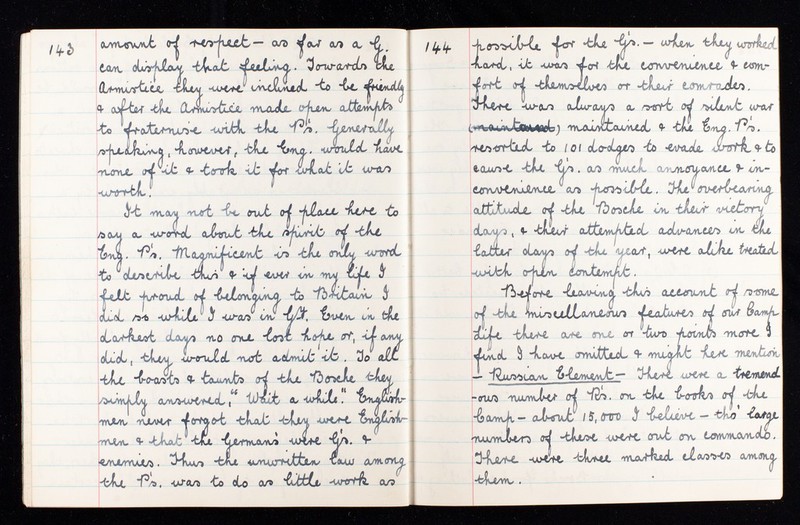 143
amount of respect — as far as a G.
can display that feeling. Towards the
Armistice they were inclined to be friendly
& after the Armistice made open attempts
to fraternise with the P's. Generally
speaking, however, the Eng. would have
none of it & took it for what it was
worth.
It may not be out of place here to
say a word about the spirit of the
Eng. P's. Magnificent is the only word
to describe this & if ever in my life I
felt proud of belonging to Britain I
did so while I was in G/d. Even in the
darkest days no one lost hope or, if any
did, they would not admit it. To all
the boasts & taunts of the Bosche they
simply answered, "Wait a while." English-
men never forgot that they were English-
men & that the Germans were G's. &
enemies. Thus the unwritten law among
the P's. was to do as little work as
144
possible for the G's. — when they worked
hard, it was for the convenience & com-
fort of themselves or their comrades.
There was always a sort of silent war
maintained & the Eng. P's.
resorted to 101 dodges to evade work & to
cause the G's. as much annoyance & in-
convenience as possible. The overbearing
attitude of the Bosche in their victory
days, & their attempted advances in the
latter days of the year, were alike treated
with open contempt.
Before leaving this account of some
of the miscellaneous features of our Camp
Life there are one or two points more I
find I have omitted & might here mention
— Russian Element — There were a tremend
-ous number of R's. on the books of the
Camp — about 15,000 I believe — tho' large
numbers of these were out on commando.
There were three marked classes among
them.